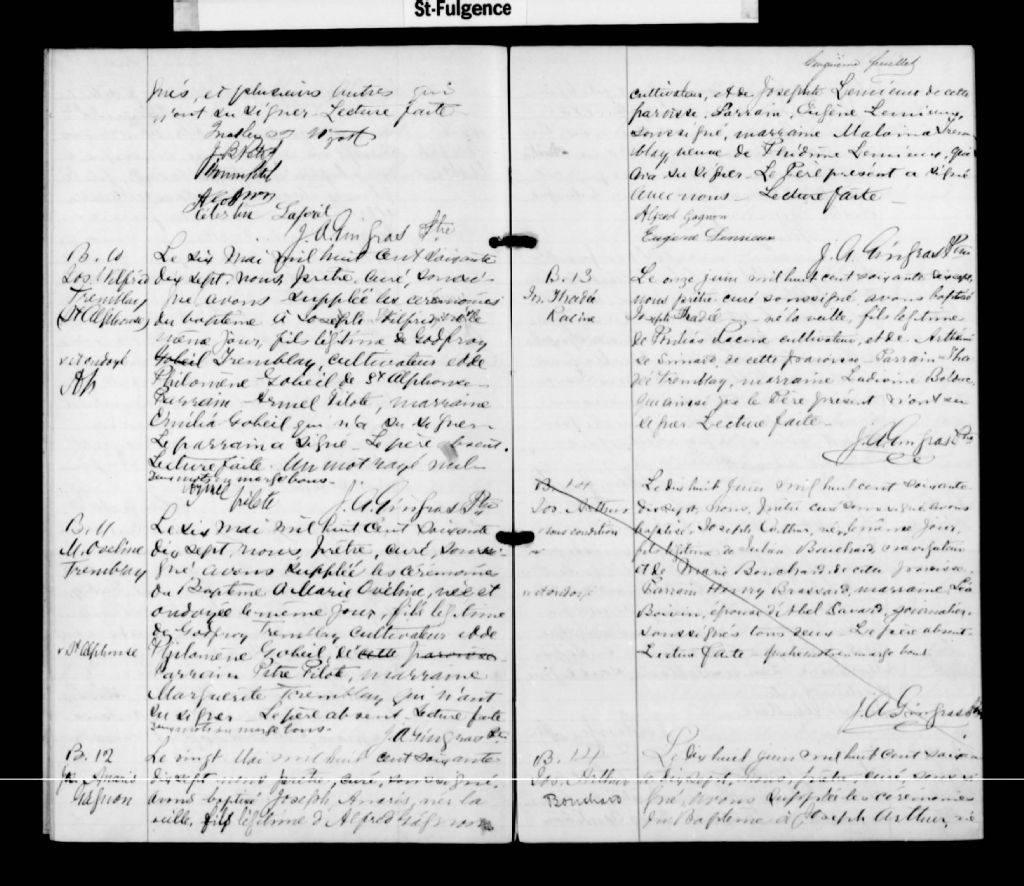 St-Fulgence
et plusieurs autres qui
n'ont su signer Lecture faite
J. A. Gingras Ptre
B. 10
Jos. Wilfred
Tremblay
(St Alphonse)
Le six Mai mil huit cent soixante
dix sept, nous, prêtre, curé, soussi-
gné avons supplée les cérémonies
du baptême à Joseph Wilfred né le
même jour, fils légitime de Godfroy
Gobeil Tremblay, cultivateur et de
Philomène Gobeil de St Alphonse
Parrain Armel Pilote, marraine
Emélia Gobeil qui n'a su signer
Le parrain a signé Le père absent.
Lecture faite. Un mot rayé nul
en marge bons.
Armel Pilote
J. A. Gingras Ptre
B. 11
M. Oveline
Tremblay
St Alphonse
Le six Mai mil huit cent soixante
dix sept, nous, prêtre, curé, soussi-
gné avons supplée les cérémonies
du Baptême à Marie Oveline, née et
ondoyée le même jour, fille légitime
de Godfroy Tremblay cultivateur et de
Philomène Gobeil, de cette paroisse
Parrain Pitre Pilote, marraine
Marguerite Tremblay qui n'ont
su signer Le père absent Lecture faite
mots en marge bons.
J. A. Gingras Ptre
B. 12
Jos. Anaris
Gagnon
Le vingt Mai mil huit cent soixante
dix sept nous prêtre, curé, soussigné,
avons baptisé Joseph, Anaris, né la
veille, fils légitime d'Alfred Gagnon
feuillet
cultivateur, et de Joseph Lemieux de cette
paroisse, Parrain, Eugène Lemieux,
soussigné, marraine Malvina Trem-
blay veuve de Lemieux, qui
n'a su signer Le Père présent a signé
avec nous Lecture faite
Alfred Gagnon
Eugène Lemieux
J. A. Gingras Ptre
B. 13
Jos. Thadée
Racine
Le onze juin mil huit cent soixante dix sept,
nous prêtre curé soussigné, avons baptisé
Joseph Thadée né la veille, fils légitime
de Racine cultivateur, et de
de cette paroisse Parrain Tha-
dée Tremblay, marraine Bolduc
que le Père présent n'ont su
signer Lecture faite
J. A. Gingras Ptre
B. 14
Jos. Arthur
sous condition
Le dix huit Juin mil huit cent soixante
dix sept, nous, prêtre curé soussigné avons
baptisé, Joseph Arthur, né, le même jour,
fils légitime de Bouchard, navigateur
et de Marie Bouchard, de cette paroisse
Parrain Henry Brassard, marraine
Boivin, épouse d'Abel Savard, journalier,
soussignés tous deux Le père absent
Lecture faite quatre mots en marge bons
J. A. Gingras Ptre
B. 14
Jos. Arthur
Bouchard
Le dix huit juin mil huit cent soixan-
te dix sept, nous, prêtre curé soussi-
gné, avons supplée les cérémonies
du baptême à Joseph Arthur, né